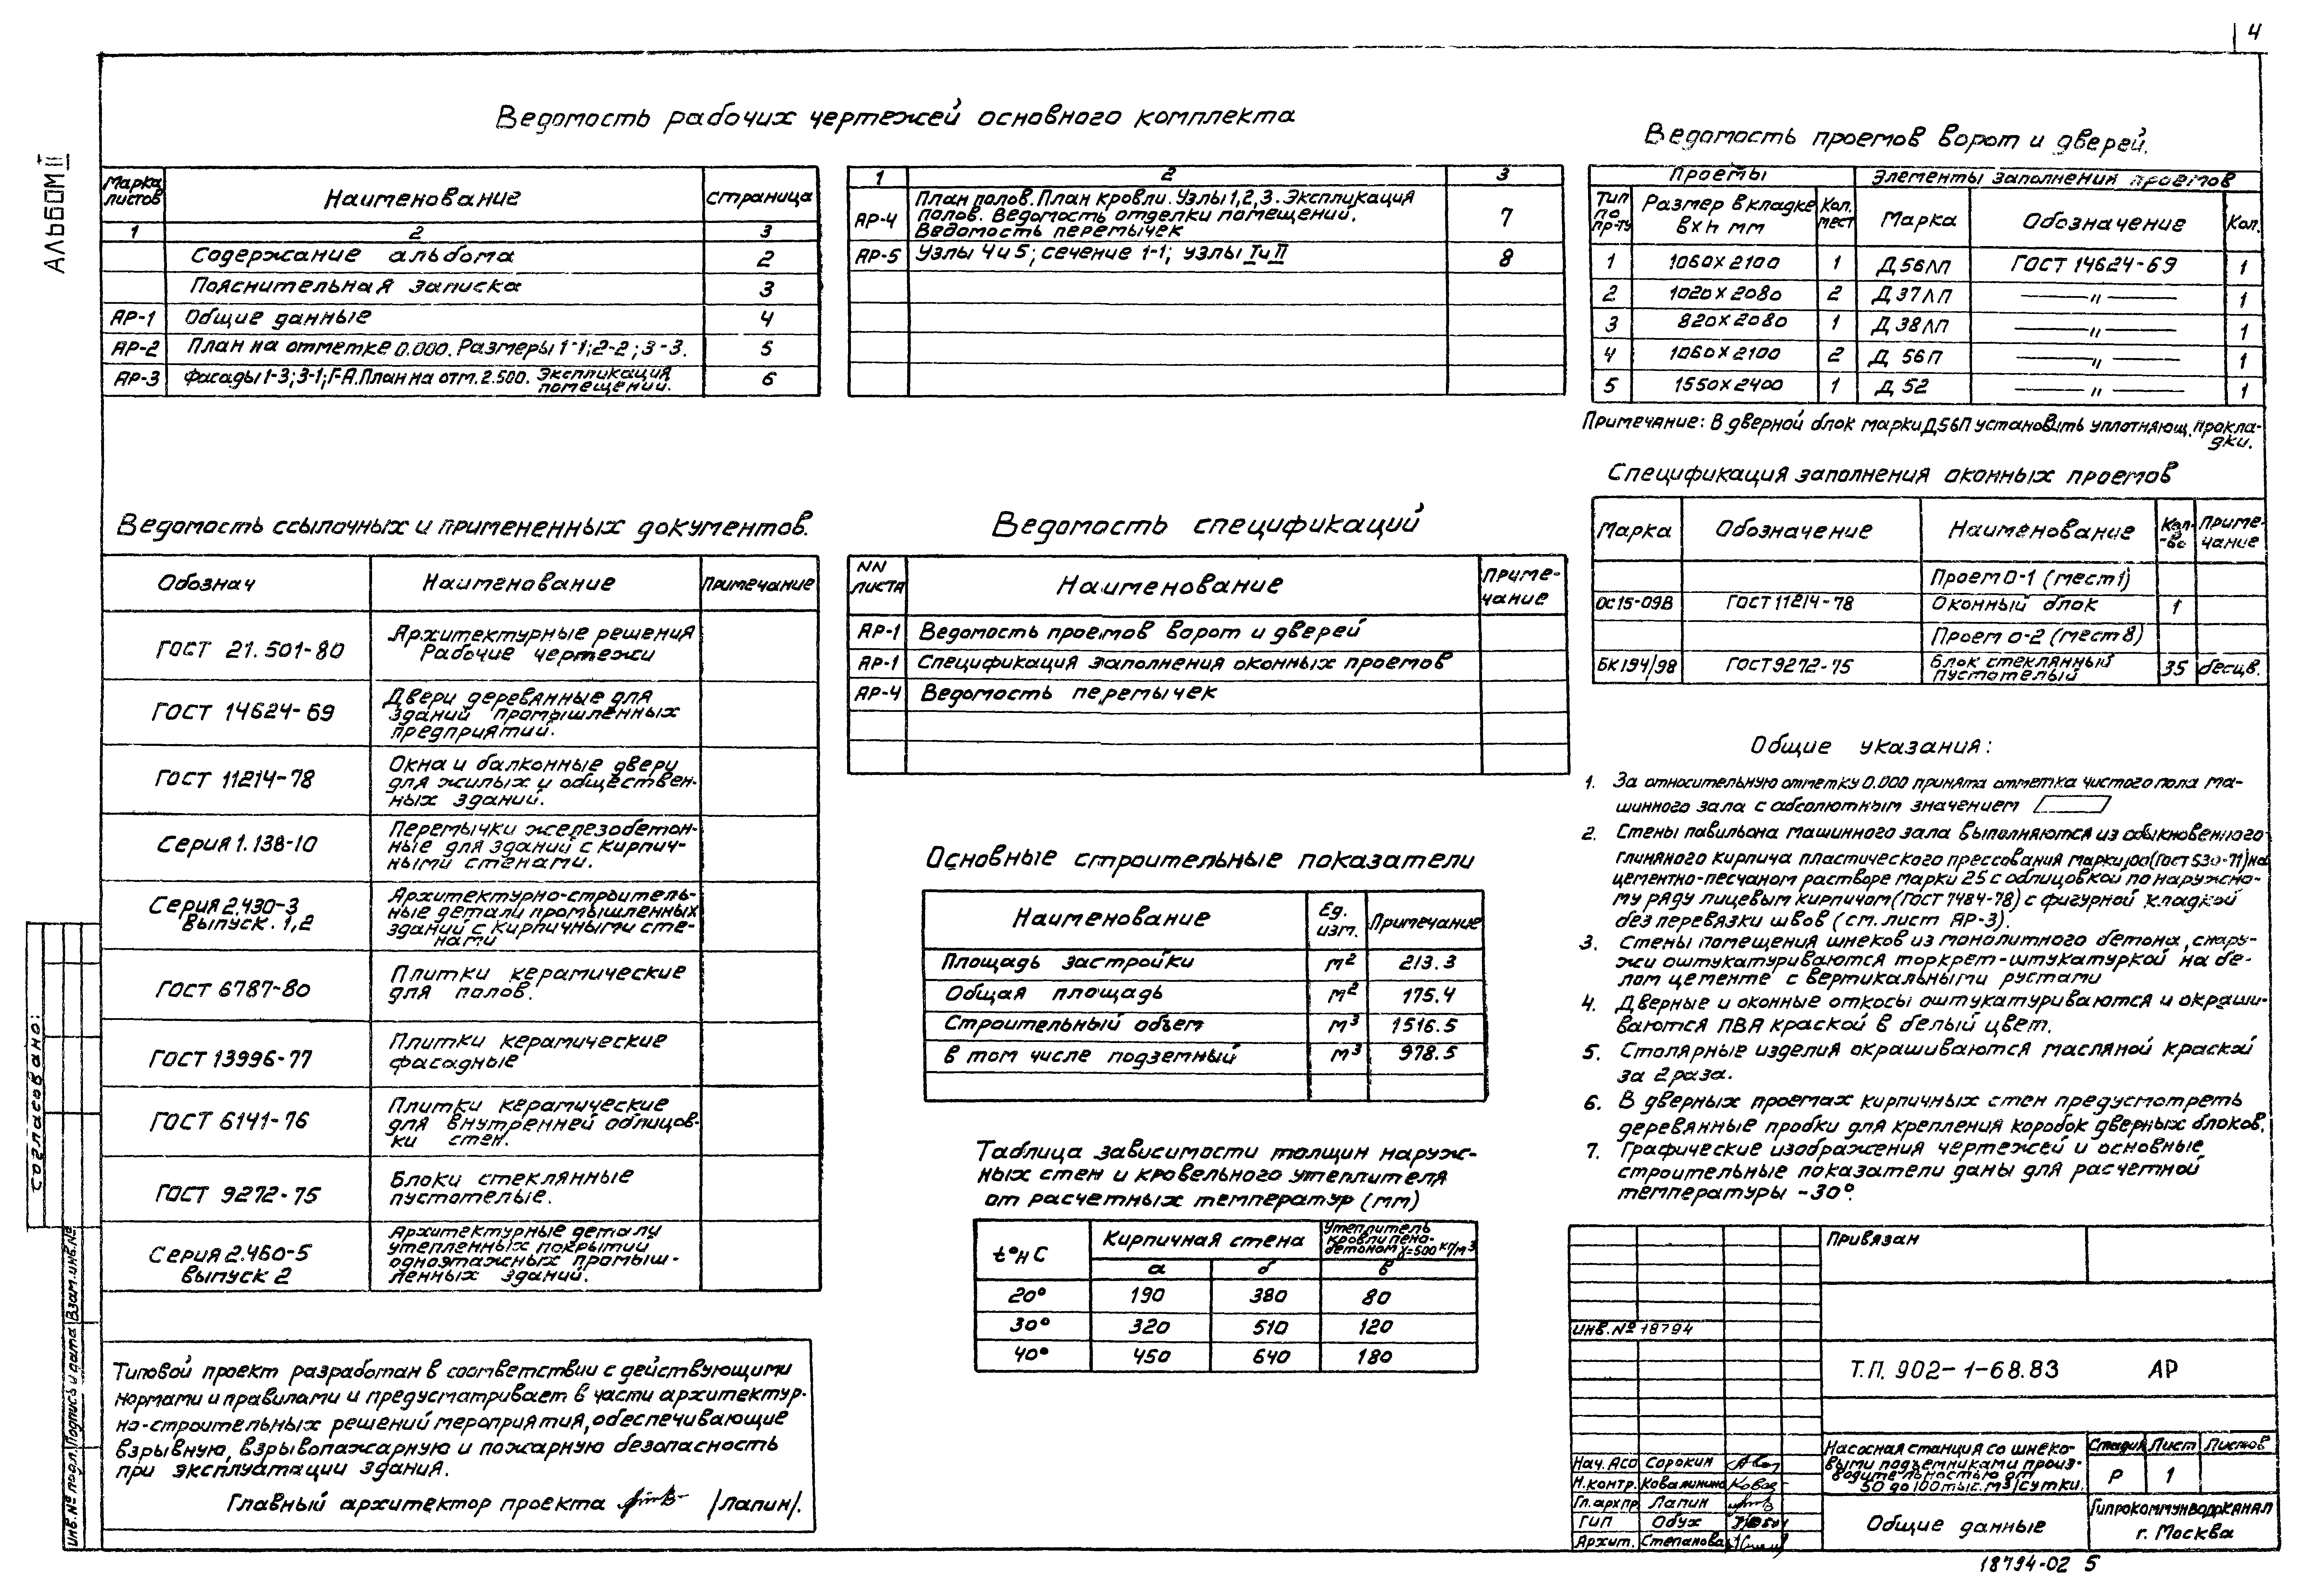 4
АЛЬБОМ II
Ведомость рабочих чертежей основного комплекта
Марка листов Наименование страница
1 2 3
Содержание альбома 2
Пояснительная записка 3
АР-1 Общие данные 4
АР-2 План на отметке 0.000. Размеры 1-1; 2-2; 3-3. 5
АР-3 Фасады 1-3; 3-1; Г-А. План на отм. 2.500. Экспликация помещений. 6
1 2 3
АР-4 План полов. План кровли. Узлы 1,2,3. Экспликация
полов. Ведомость отделки помещений. 7
Ведомость перемычек
АР-5 Узлы 4 и 5; сечение 1-1; узлы I и II 8
Ведомость проемов ворот и дверей.
Проемы Элементы заполнения проемов
Тип по пр-ту Размер в кладке в×h мм Кол. мест Марка Обозначение Кол.
1 1060×2100 1 Д56ЛП ГОСТ 14624-69 1
2 1020×2080 2 Д37ЛП —〃— 1
3 820×2080 1 Д38ЛП —〃— 1
4 1060×2100 2 Д 56П —〃— 1
5 1550×2400 1 Д 52 —〃— 1
Примечание: В дверной блок марки Д56П установить уплотняющ. прокла-
дки.
Спецификация заполнения оконных проемов
Марка Обозначение Наименование Кол-во Приме-чание
Проем О-1 (мест 1)
ОС15-09В ГОСТ 11214-78 Оконный блок 1
Проем О-2 (мест 8)
БК194/98 ГОСТ 9272-75 Блок стеклянный пустотелый 35 бесцв.
Ведомость ссылочных и примененных документов.
Обознач Наименование Примечание
ГОСТ 21.501-80 Архитектурные решения
Рабочие чертежи
ГОСТ 14624-69 Двери деревянные для
зданий промышленных
предприятий.
ГОСТ 11214-78 Окна и балконные двери
для жилых и обществен-
ных зданий.
Серия 1.138-10 Перемычки железобетон-
ные для зданий с кирпич-
ными стенами.
Серия 2.430-3 выпуск. 1,2 Архитектурно-строитель-
ные детали промышленных
зданий с кирпичными сте-
нами
ГОСТ 6787-80 Плитки керамические
для полов.
ГОСТ 13996-77 Плитки керамические
фасадные
ГОСТ 6141-76 Плитки керамические
для внутренней облицов-
ки стен.
ГОСТ 9272-75 Блоки стеклянные
пустотелые.
Серия 2.460-5 выпуск 2 Архитектурные детали
утепленных покрытий
одноэтажных промыш-
ленных зданий.
Ведомость спецификаций
NN листа Наименование Приме-чание
АР-1 Ведомость проемов ворот и дверей
АР-1 Спецификация заполнения оконных проемов
АР-4 Ведомость перемычек
Основные строительные показатели
Наименование Ед. изм. Примечание
Площадь застройки м² 213.3
Общая площадь м² 175.4
Строительный объем м³ 1516.5
в том числе подземный м³ 978.5
Таблица зависимости толщин наруж-
ных стен и кровельного утеплителя
от расчетных температур (мм)
t°н С Кирпичная стена Утеплитель кровли пено-бетоном γ=500 кг/м³
а б в
20° 190 380 80
30° 320 510 120
40° 450 640 180
Общие указания:
1. За относительную отметку 0.000 принята отметка чистого пола ма-
шинного зала с абсолютным значением
2. Стены павильона машинного зала выполняются из обыкновенного
глиняного кирпича пластического прессования марки 100 (ГОСТ 530-71) на
цементно-песчаном растворе марки 25 с облицовкой по наружно-
му ряду лицевым кирпичом (ГОСТ 7484-78) с фигурной кладкой
без перевязки швов (ст. лист АР-3).
3. Стены помещения шнеков из монолитного бетона, снару-
жи оштукатуриваются торкрет-штукатуркой на бе-
лом цементе с вертикальными рустами
4. Дверные и оконные откосы оштукатуриваются и окраши-
ваются ПВА краской в белый цвет.
5. Столярные изделия окрашиваются масляной краской
за 2 раза.
6. В дверных проемах кирпичных стен предусмотреть
деревянные пробки для крепления коробок дверных блоков.
7. Графические изображения чертежей и основные
строительные показатели даны для расчетной
температуры -30°.
Типовой проект разработан в соответствии с действующими
нормами и правилами и предусматривает в части архитектур-
но-строительных решений мероприятия, обеспечивающие
взрывную, взрывопажарную и пожарную безопасность
при эксплуатации здания.
Главный архитектор проекта /Лапин/.
согласовано:
Инв.№ подл. Подпись и дата Взам.инв.№
Привязан
инв.№ 18794
Т.П. 902-1-68.83 АР
Насосная станция со шнеко-
выми подъемниками произ-
водительностью от
50 до 100 тыс. м³/сутки.
Стадия Лист Листов
Р 1
Нач. АСО Сорокин
Н.контр. Ковалинина
Гл.арх.пр Лапин
ГИП Обух
Архит. Степанова
Общие данные
Гипрокоммунводоканал
г. Москва
18794-02 5